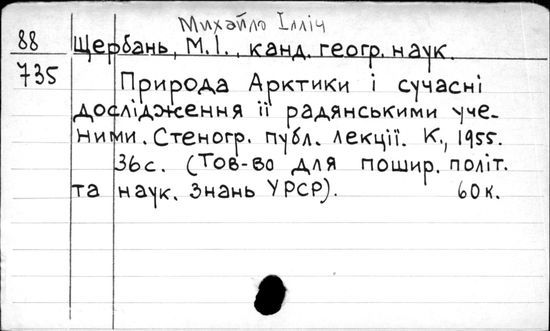 Михайло Ілліч
88 Щербань, М.І., канд. геогр. наук.
735 Природа Арктики і сучасні
дослідження її радянськими уче-
ними. Стеногр. публ. лекції. К., 1955.
36с. (Тов-во для пошир. політ.
та наук. знань УРСР). 60к.